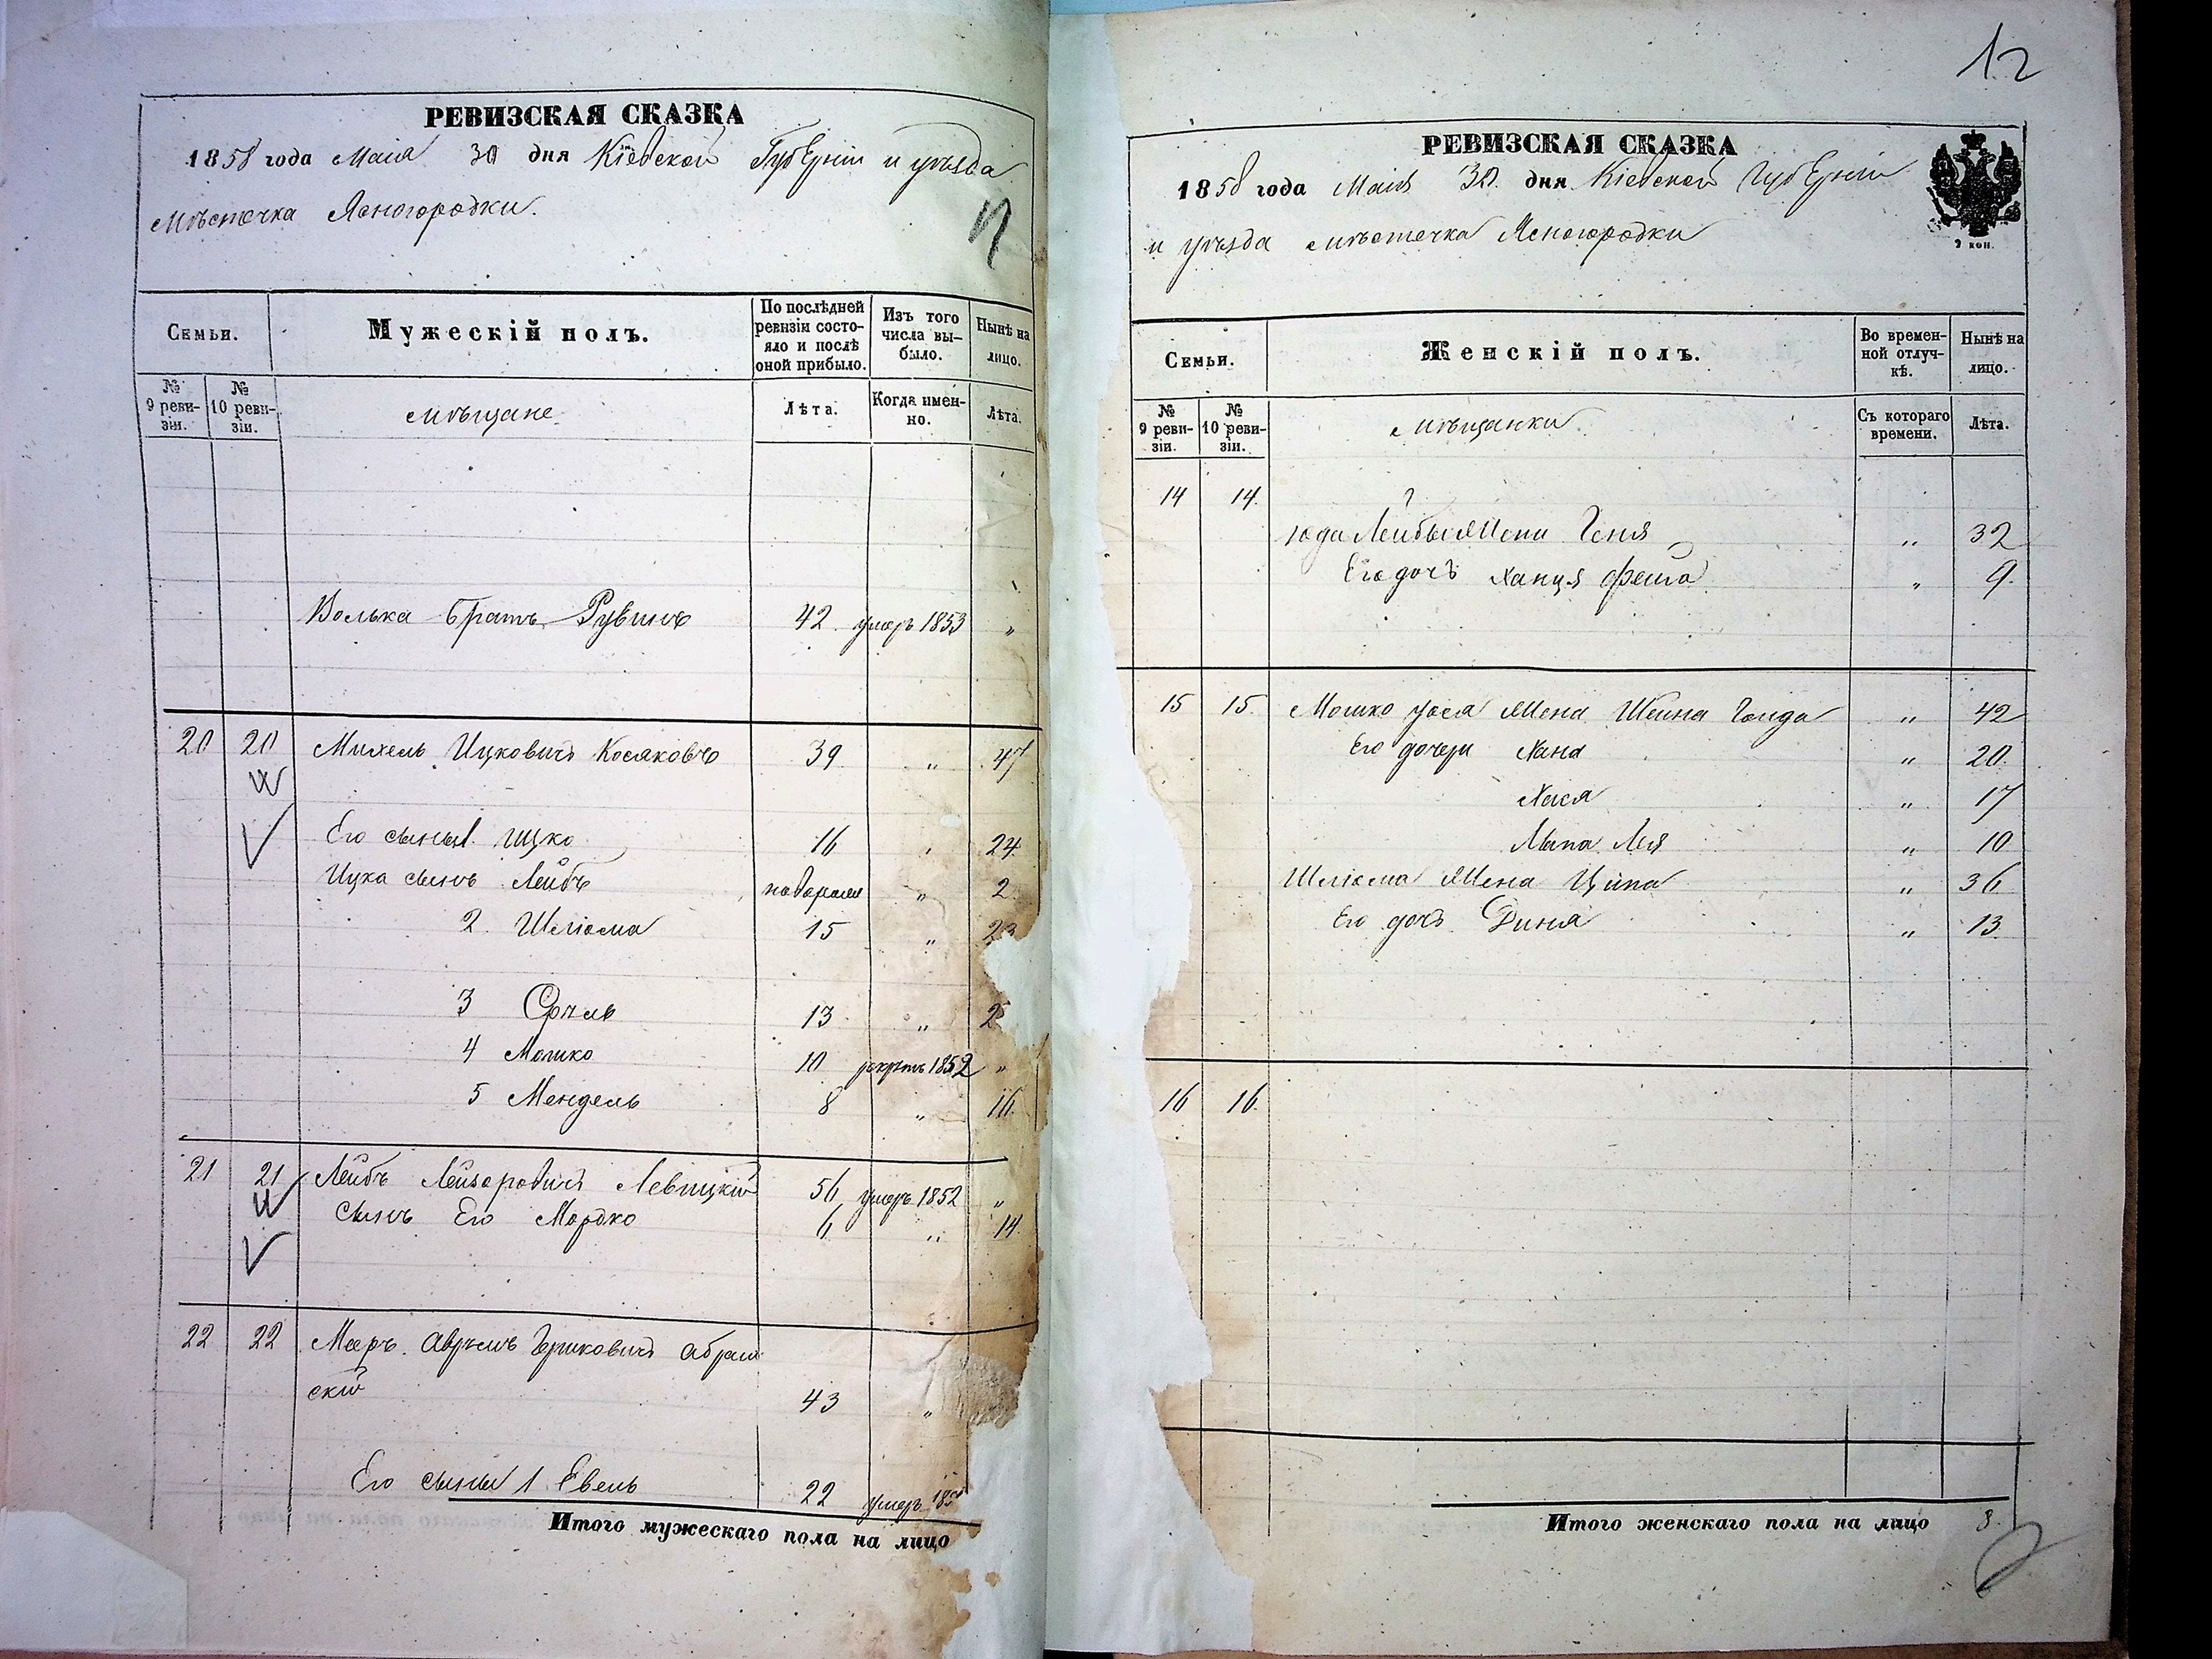 РЕВИЗСКАЯ СКАЗКА
1858 года Маія 30 дня Кіевской Губерніи и уѣзда
мѣстечка Ясногородки.
Семьи.
Мужескій полъ.
По послѣдней ревизіи состояло и послѣ оной прибыло.
Изъ того числа выбыло.
Нынѣ на лицо.
№ 9 ревизіи.
№ 10 ревизіи.
мѣщане
Лѣта.
Когда именно.
Лѣта.
Волька братъ Рувинъ 42 умеръ 1853 "
20 20 Михель Ицковичъ Косяковъ 39 " 47
Его сыны 1 Ицко 16 " 24
Ицка сынъ Лейбъ " 2
2 Шліома 15 " 23
3 Срѣль 13 " 2
4 Мошко 10 1852 "
5 Мендель 8 " 16
21 21 Лейбъ Лейзоровичъ Левицкій 56 умеръ 1852 "
Сынъ Его Мордко 6 " 14
22 22 Мееръ Аврумъ Гершковичъ
скій 43 "
Его сыны 1 Евель 22 умеръ 185
Итого мужескаго пола на лицо
12
РЕВИЗСКАЯ СКАЗКА
1858 года Маія 30 дня Кіевской Губерніи
и уѣзда мѣстечка Ясногородки
Семьи.
Женскій полъ.
Во временной отлучкѣ.
Нынѣ на лицо.
№ 9 ревизіи.
№ 10 ревизіи.
мѣщанки
Съ котораго времени.
Лѣта.
14 14
Юда Лейбы жена Геня " 32
Его дочь Ханця Фейга " 9
15 15 Мошко жена Шейна Голда " 42
Его дочери Хана " 20
Хася " 17
Лея " 10
Шліома жена Ципа " 36
Его дочь Диня " 13
16 16
Итого женскаго пола на лицо 8